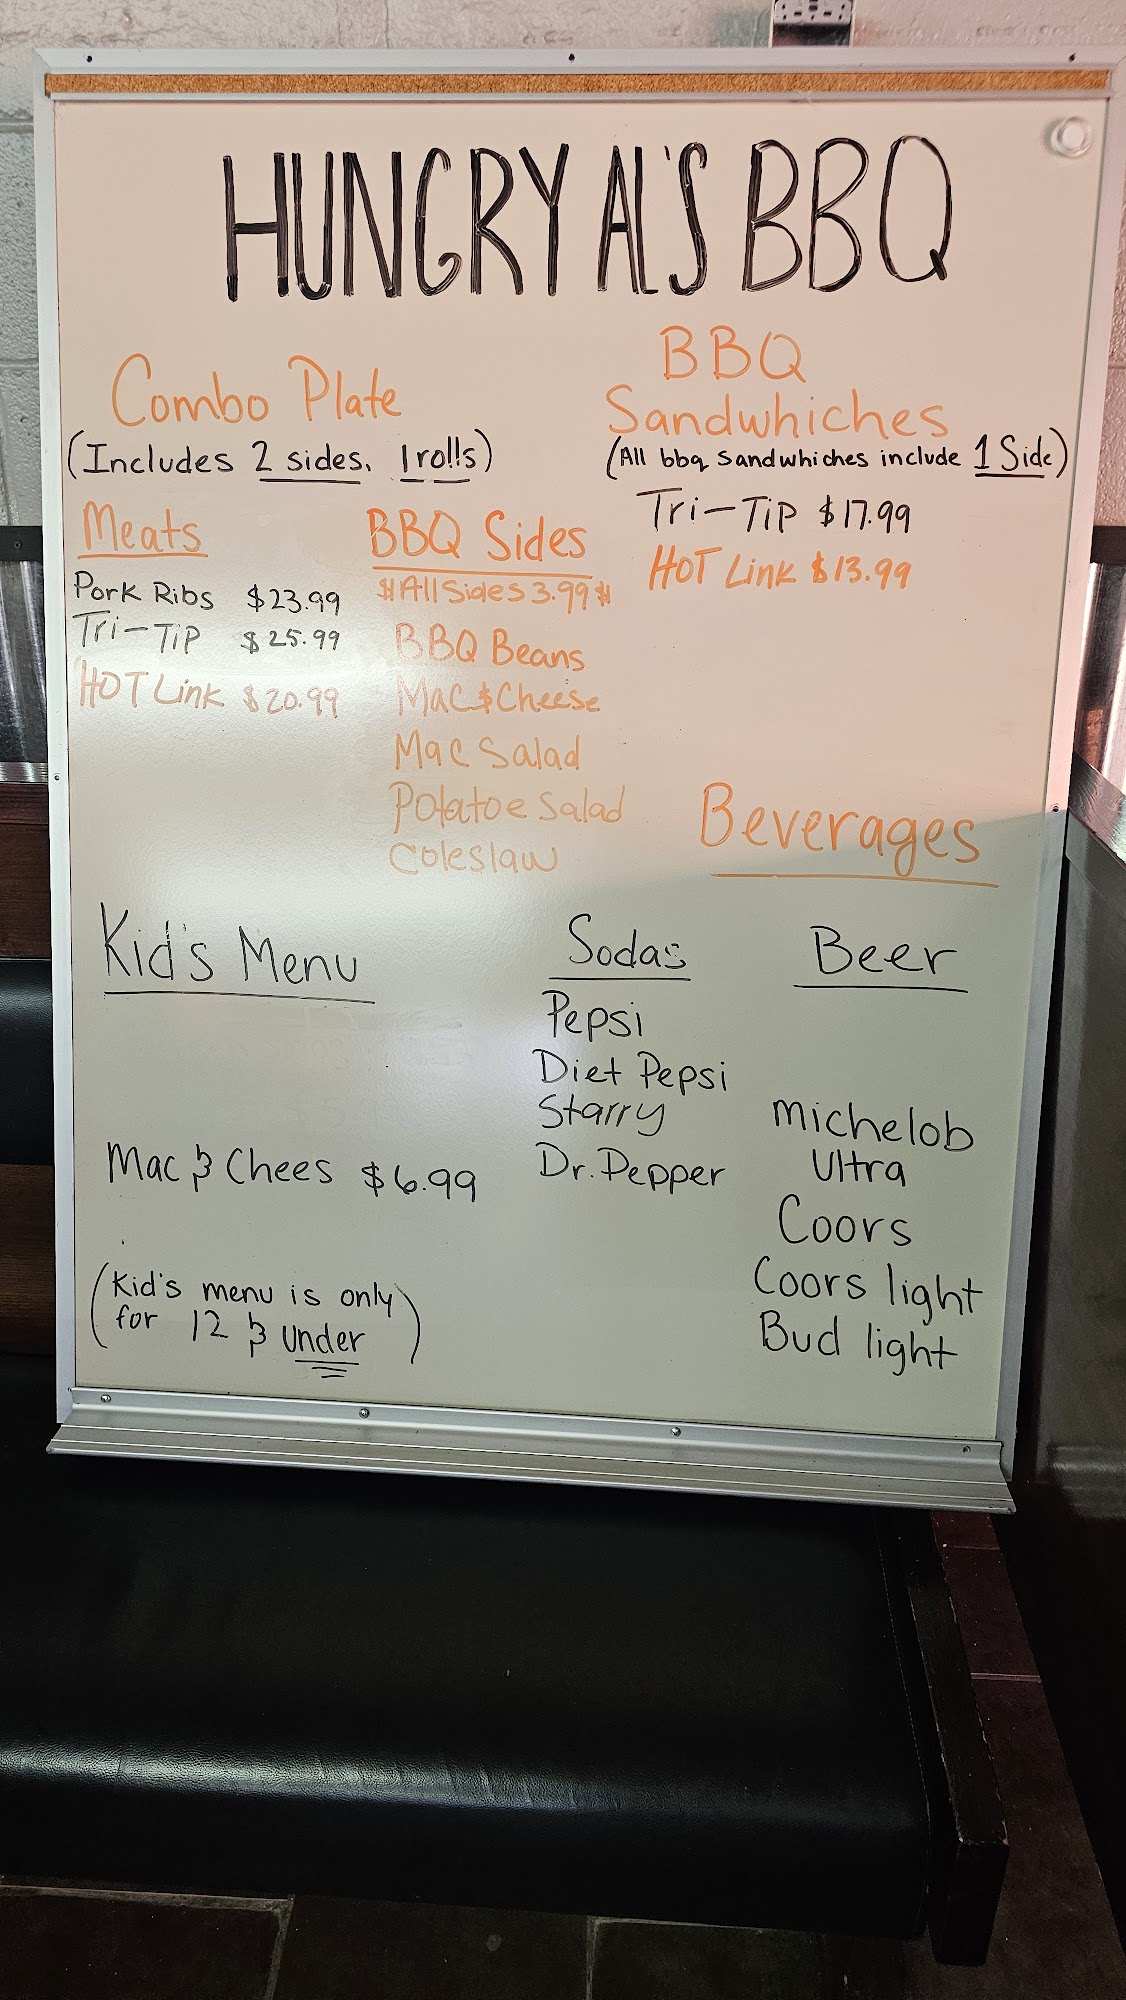 HUNGRY AL'S BBQ
Combo Plate
(Includes 2 sides, 1 rolls)
Meats
Pork Ribs $23.99
Tri-Tip $25.99
HOT Link $20.99
BBQ Sides
$All Sides 3.99$
BBQ Beans
Mac $ Cheese
Mac Salad
Potatoe Salad
Coleslaw
BBQ
Sandwhiches
(All bbq sandwhiches include 1 Side)
Tri-Tip $17.99
HOT Link $13.99
Kid's Menu
Mac & Chees $6.99
(Kid's menu is only
for 12 & under)
Beverages
Sodas
Pepsi
Diet Pepsi
Starry
Dr. Pepper
Beer
Michelob
Ultra
Coors
Coors light
Bud light